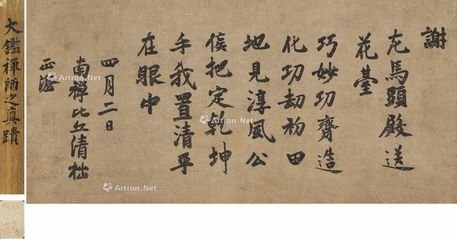 謝
左馬頭殿送
花臺
巧妙功齊造
化功劫初田
地見淳風公
侯把定乾坤
手我置清平
在眼中
四月二日
南禅比丘清拙
正澄
大鑑禪師之真蹟
Artron.Net
Artron.Net
Artron.Net
Artron.Net